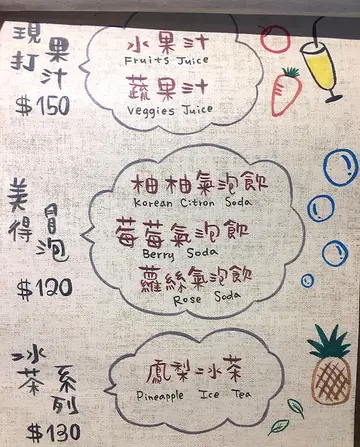 現打果汁
$150
水果汁
Fruits Juice
蔬果汁
Veggies Juice
美得冒泡
$120
柚柚氣泡飲
Korean Citron Soda
莓莓氣泡飲
Berry Soda
蘿絲氣泡飲
Rose Soda
冰茶系列
$130
鳳梨冰茶
Pineapple Ice Tea